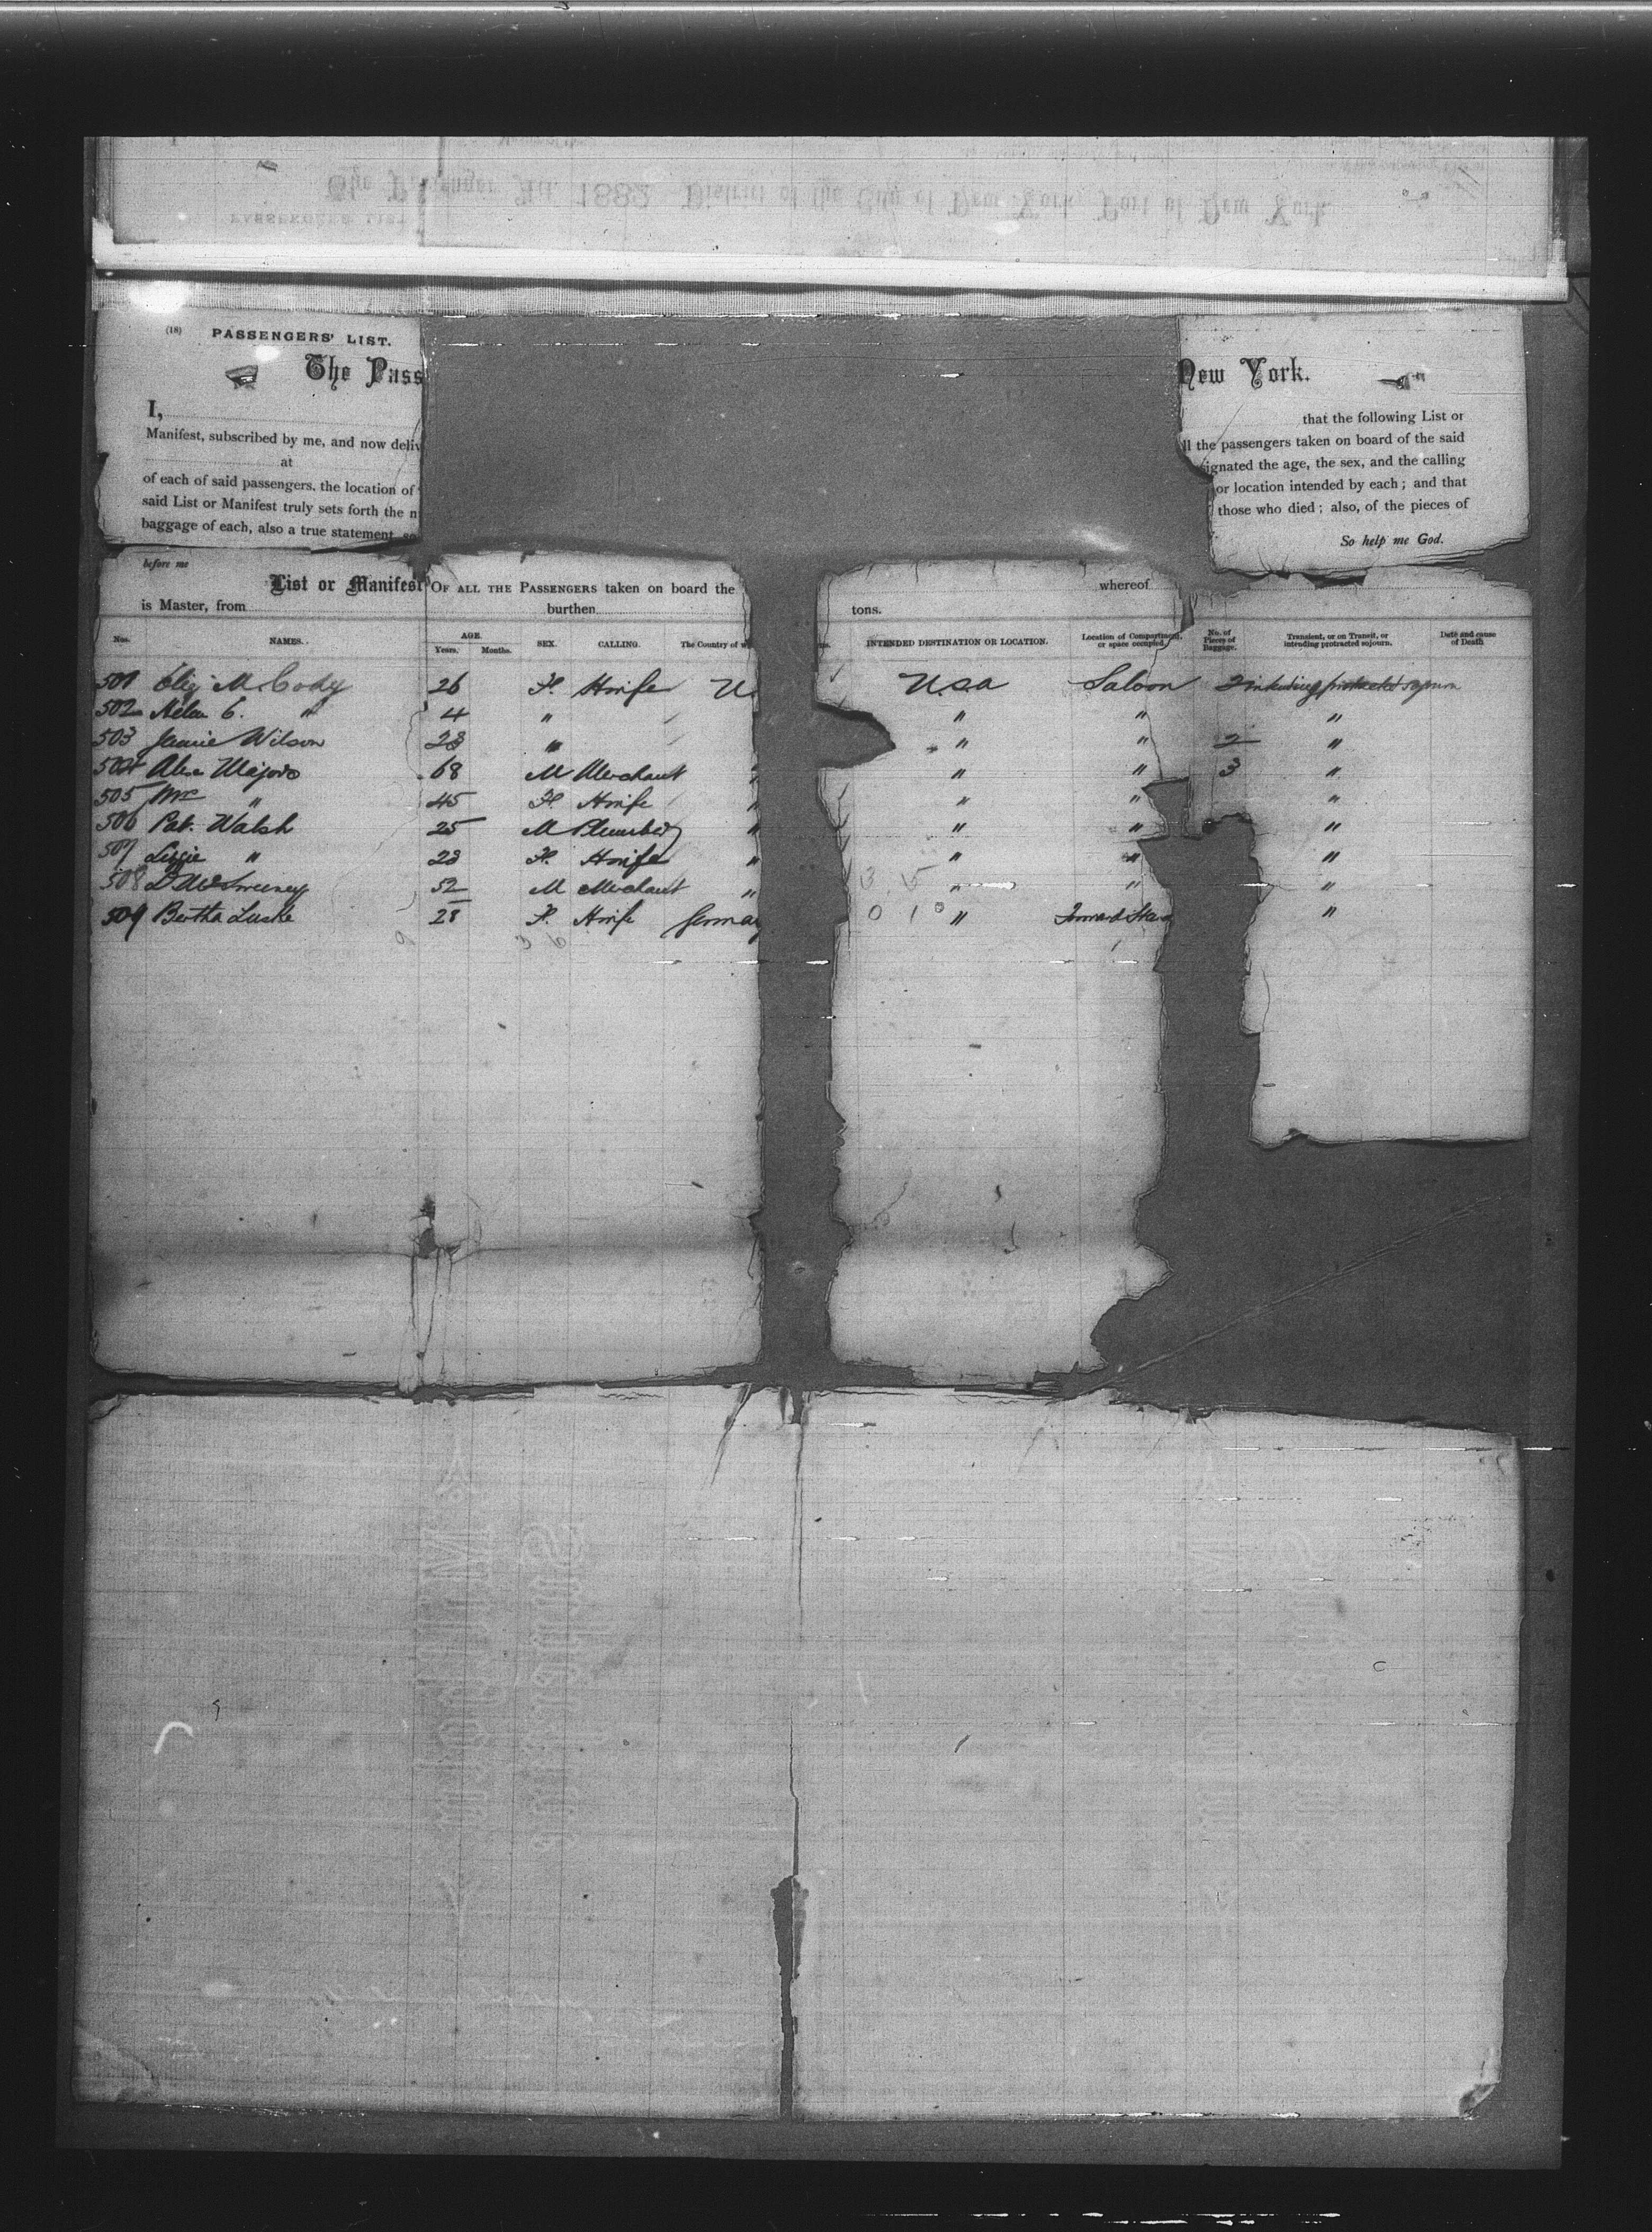 (18) PASSENGERS' LIST.
The Pass New York.
I, that the following List or
Manifest, subscribed by me, and now deliv ll the passengers taken on board of the said
at ignated the age, the sex, and the calling
of each of said passengers, the location of or location intended by each; and that
said List or Manifest truly sets forth the n those who died; also, of the pieces of
baggage of each, also a true statement so
So help me God.
before me
List or Manifest OF ALL THE PASSENGERS taken on board the whereof
is Master, from burthen tons.
Nos. NAMES. AGE. Years. Months. SEX. CALLING. The Country of w INTENDED DESTINATION OR LOCATION. Location of Compartment, or space occupied. No. of Pieces of Baggage. Transient, or on Transit, or intending protracted sojourn. Date and cause of Death
501 Eliz M. Cody 26 F. H wife U. Usa Saloon 2 intending protracted sojourn
502 Helen C. " 4 " " " "
503 Jennie Wilson 23 " " " 2 "
504 Alex Majors 68 M Merchant " " " 3 "
505 Mrs " 45 F. H wife " " " "
506 Pat. Walsh 25 M Plumber " " " "
507 Lizzie " 23 F. H wife " " " "
508 D. McSweeney 52 M Merchant " " " "
509 Bertha Luske 28 F. H wife German " "